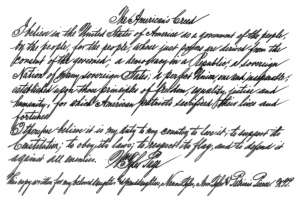 The American's Creed
I believe in the United States of America as a government of the people,
by the people, for the people, whose just powers are derived from the
consent of the governed; a democracy in a Republic; a sovereign
Nation of many sovereign States; a perfect Union, one and inseparable;
established upon those principles of freedom, equality, justice and
humanity, for which American Patriots sacrificed their lives and
fortunes.
I therefore believe it is my duty to my country to love it; to support the
Constitution; to obey its laws; to respect its flag, and to defend it
against all enemies.
This copy written for my beloved